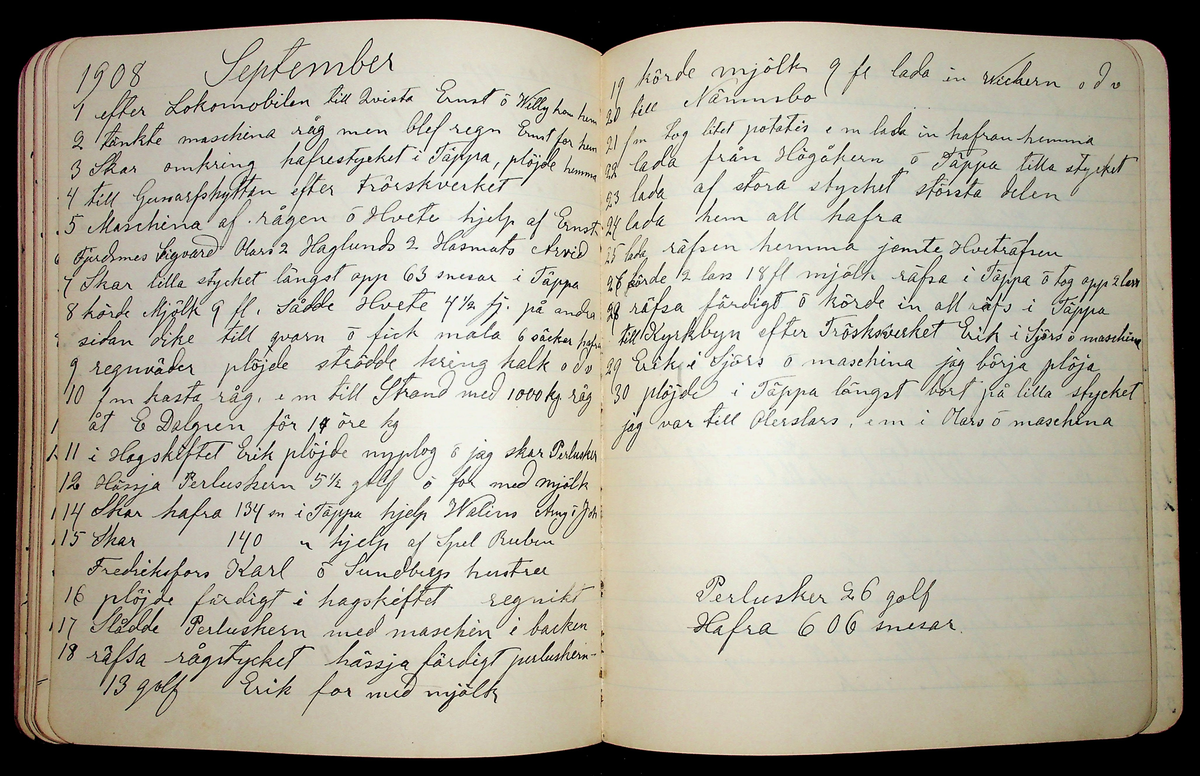 1908 September
1 efter Lokomobilen till Qvista Ernst ö Willy han hem
2 tänkte maschina råg men blef regn Ernst for hem
3 Skar omkring hafrestycket i Täppa, plöjde hemma
4 till Gussarfshyttan efter Tröskverket
5 Maschina af rågen ö Hvete hjelp af Ernst
Fjerdsmes Sigvard Olars 2 Haglunds 2 Hasmats Arvid
7 Skar lilla stycket längst opp 63 snesar i Täppa
8 körde Mjölk 9 fl. Sådde Hvete 4½ fj. på andra
sidan dike till qvarn ö fick mala 6 säckar hafra
9 regnväder plöjde strödde kring kalk o d v
10 fm kasta råg, e m till Strand med 1000 kg råg
åt E Dalgren för 14 öre kg
11 i Hagskiftet Erik plöjde nyplog ö jag skar Perlusker
12 Hässja Perluskern 5½ golf ö for med mjölk
14 Skar hafra 134 sn i Täppa hjelp Walins Aug i
15 Skar 140 " hjelp af Spel Ruben
Fredriksfors Karl ö Sundbergs hustrer
16 plöjde färdigt i hagskiftet regnikt
17 Slådde Perluskern med maschin i backen
18 räfsa rågstycket hässja färdigt perluskern-
13 golf Erik for med mjölk
19 körde mjölk 9 fl lada in Wickern o d v
20 till Nämnsbo
21 fm tog litet potatis e m lada in hafran hemma
22 lada från Högåkern ö Täppa lilla stycket
23 lada af stora stycket största delen
24 lada hem all hafra
25 lada räfsen hemma jemte Hveträfsen
26 körde 2 lass 18 fl mjölk räfsa i Täppa ö tog opp 2 lass
28 räfsa färdigt ö körde in all räfs i Täppa
till Kyrkbyn efter Tröskverket Erik i Sjörs ö maschina
29 Erik i Sjörs ö maschina jag börja plöja
30 plöjde i Täppa längst bort på lilla stycket
jag var till Olerslars, e m i Olars ö maschina
Perlusker 26 golf
Hafra 606 snesar.